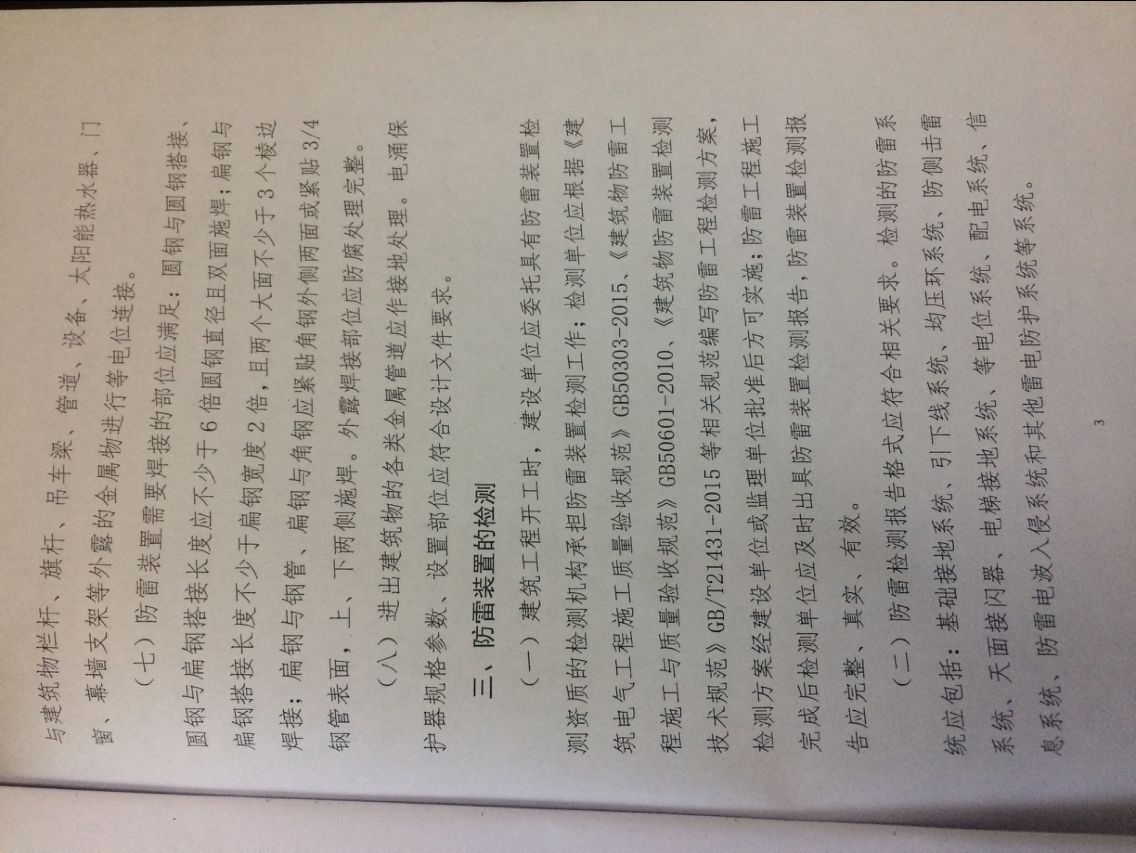 与建筑物栏杆、旗杆、吊车梁、管道、设备、太阳能热水器、门
窗、幕墙支架等外露的金属物进行等电位连接。
（七）防雷装置需要焊接的部位应满足：圆钢与圆钢搭接、
圆钢与扁钢搭接长度应不少于6倍圆钢直径且双面施焊；扁钢与
扁钢搭接长度不少于扁钢宽度2倍，且两个大面不少于3个棱边
焊接；扁钢与钢管、扁钢与角钢应紧贴角钢外侧两面或紧贴3/4
钢管表面，上、下两侧施焊。外露焊接部位应防腐处理完整。
（八）进出建筑物的各类金属管道应作接地处理。电涌保
护器规格参数、设置部位应符合设计文件要求。
三、防雷装置的检测
（一）建筑工程开工时，建设单位应委托具有防雷装置检
测资质的检测机构承担防雷装置检测工作；检测单位应根据《建
筑电气工程施工质量验收规范》GB50303-2015、《建筑物防雷工
程施工与质量验收规范》GB50601-2010、《建筑物防雷装置检测
技术规范》GB/T21431-2015等相关规范编写防雷工程检测方案，
检测方案经建设单位或监理单位批准后方可实施；防雷工程施工
完成后检测单位应及时出具防雷装置检测报告，防雷装置检测报
告应完整、真实、有效。
（二）防雷检测报告格式应符合相关要求。检测的防雷系
统应包括：基础接地系统、引下线系统、均压环系统、防侧击雷
系统、天面接闪器、电梯接地系统、等电位系统、配电系统、信
息系统、防雷电波入侵系统和其他雷电防护系统等系统。
3